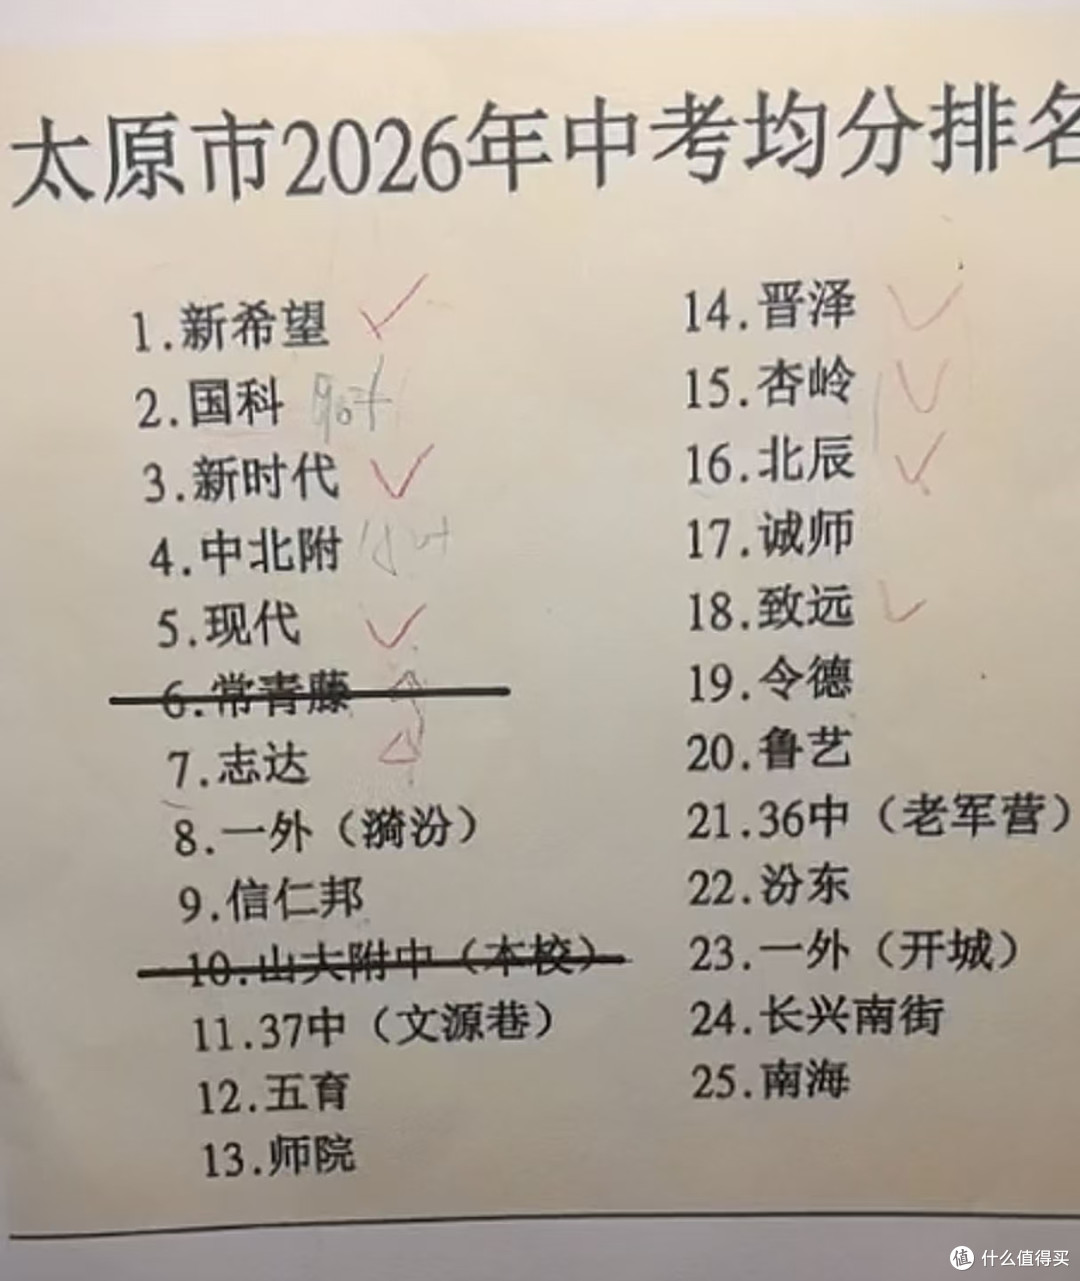 太原市2026年中考均分排名
1.新希望
2.国科
3.新时代
4.中北附
5.现代
6.常青藤
7.志达
8.一外（漪汾）
9.信仁邦
10.山大附中（本校）
11.37中（文源巷）
12.五育
13.师院
14.晋泽
15.杏岭
16.北辰
17.诚师
18.致远
19.令德
20.鲁艺
21.36中（老军营）
22.汾东
23.一外（开城）
24.长兴南街
25.南海
值 什么值得买